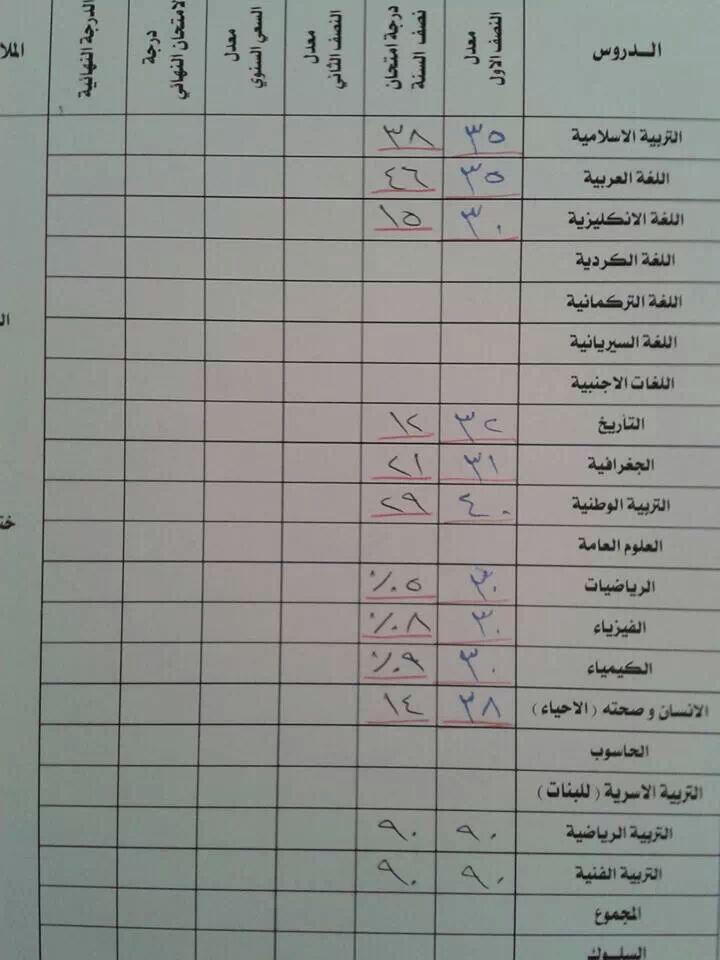 الـدروس معدل النصف الاول درجة امتحان نصف السنة معدل النصف الثاني معدل السعي السنوي درجة الامتحان النهائي الدرجة النهائية
التربية الاسلامية ٣٥ ٣٨
اللغة العربية ٣٥ ٤٦
اللغة الانكليزية ٣٠ ١٥
اللغة الكردية
اللغة التركمانية
اللغة السيريانية
اللغات الاجنبية
التأريخ ٣٢ ١٢
الجغرافية ٣١ ٢١
التربية الوطنية ٤٠ ٢٩
العلوم العامة
الرياضيات ٣٠ ٠٥٪
الفيزياء ٣٠ ٠٨٪
الكيمياء ٣٠ ٠٩٪
الانسان وصحته (الاحياء) ٣٨ ١٤
الحاسوب
التربية الاسرية (للبنات)
التربية الرياضية ٩٠ ٩٠
التربية الفنية ٩٠ ٩٠
المجموع
السلوك